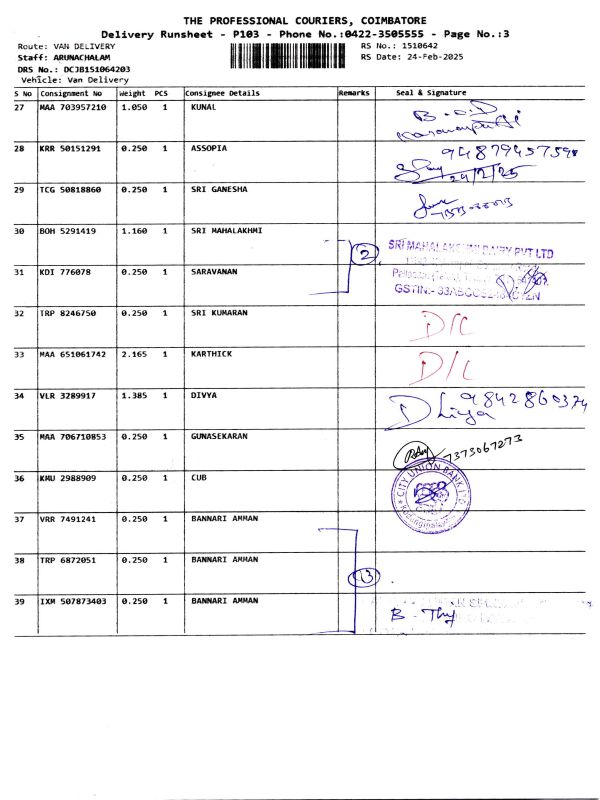 THE PROFESSIONAL COURIERS, COIMBATORE
Delivery Runsheet - P103 - Phone No.:0422-3505555 - Page No.:3
Route: VAN DELIVERY RS No.: 1510642
Staff: ARUNACHALAM RS Date: 24-Feb-2025
DRS No.: DCJB151064203
Vehicle: Van Delivery
S No Consignment No Weight PCS Consignee Details Remarks Seal & Signature
27 MAA 703957210 1.050 1 KUNAL
28 KRR 50151291 0.250 1 ASSOPIA
24/2/25
29 TCG 50818860 0.250 1 SRI GANESHA
30 BOH 5291419 1.160 1 SRI MAHALAKHMI
2 SRI MAHALAKSHMI DAIRY PVT LTD
31 KDI 776078 0.250 1 SARAVANAN
GSTIN:-
32 TRP 8246750 0.250 1 SRI KUMARAN D/C
33 MAA 651061742 2.165 1 KARTHICK D/C
34 VLR 3289917 1.385 1 DIVYA 9842860374
35 MAA 706710853 0.250 1 GUNASEKARAN 7373067273
36 KMU 2988909 0.250 1 CUB CITY UNION BANK LTD
37 VRR 7491241 0.250 1 BANNARI AMMAN
38 TRP 6872051 0.250 1 BANNARI AMMAN 3
39 IXM 507873403 0.250 1 BANNARI AMMAN